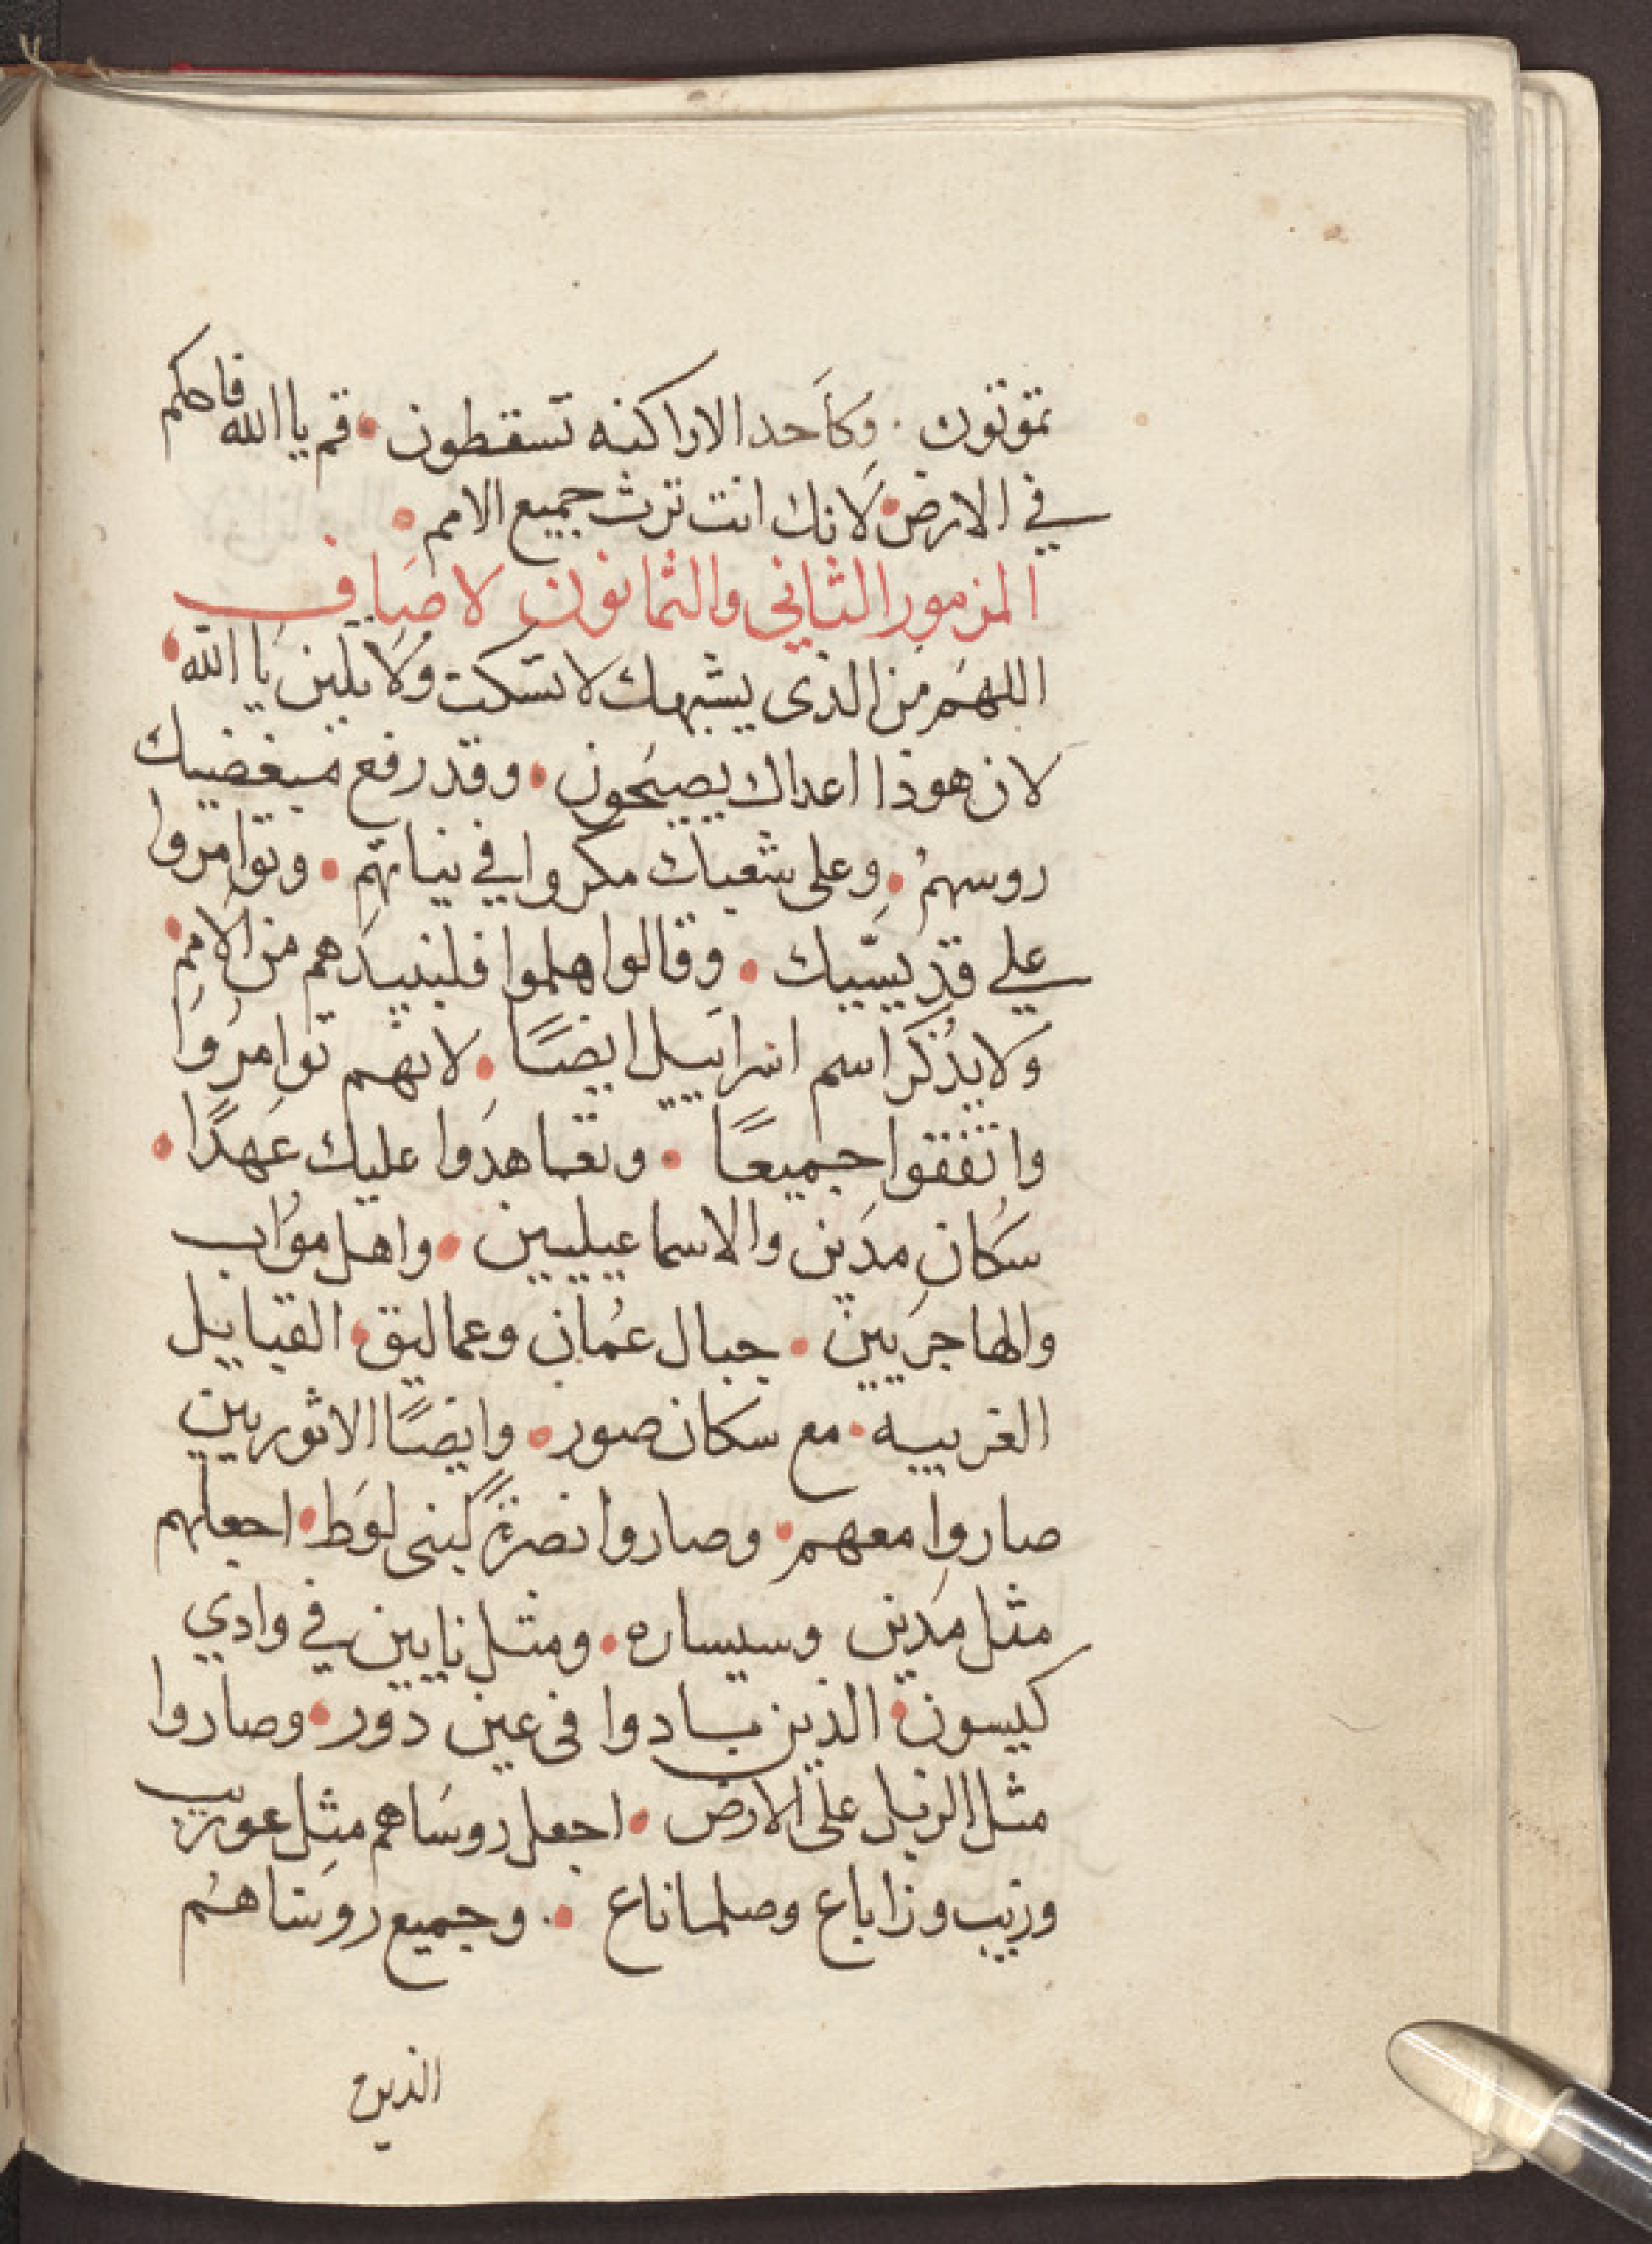 تموتون · وكَاَحد الاراكنه تسقطون • قم يا الله فاحكم
في الارض • لانك انت ترث جميع الامم •
المزمور الثاني والثمانون لاصَاف
اللهمَ من الذى يشبهك لا تسكت وَلَا تلين يَا الله •
لان هوذا اعداك يصيَحون • وقد رفع مبغضيك
روسهمْ • وعلى شعبك مكروا في نياتهم • وتوامروا
علي قدِيسَيك • وقالوا هلموا فلنبيدَهم من الاممِ •
وَلا يذْكَر اسم اسراييل ايضًا • لانهم توامرُوَا
واتفقوا جميعًا • وتعاهدَوا عليك عَهدًا •
سَكان مدَين والاسماعيليين • واهل موُاب
والهاجرَيين • جبال عمُان وعماليق • القبايل
الغريبه • مع سكان صور • وايضًا الاثوريين
صاروا معهم • وصاروا نصرَةً لبنى لوَط • اجعلهم
مثل مَدين وسيساره • ومثل نايين في وادي
كيسون • الذين بادوا فى عين دَور • وصاروا
مثل الزبل على الارض • اجعل روسَاهم مثِل عوريب
وزيب وزاباع وصلماناع • وجميع روسَاهمُ
الذين